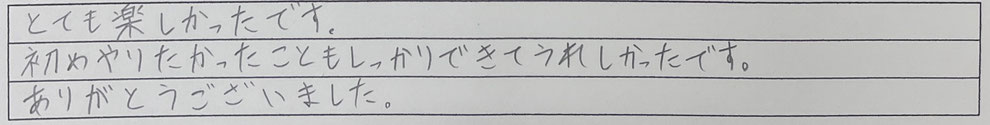 とても楽しかったです。
初めやりたかったこともしっかりできてうれしかったです。
ありがとうございました。